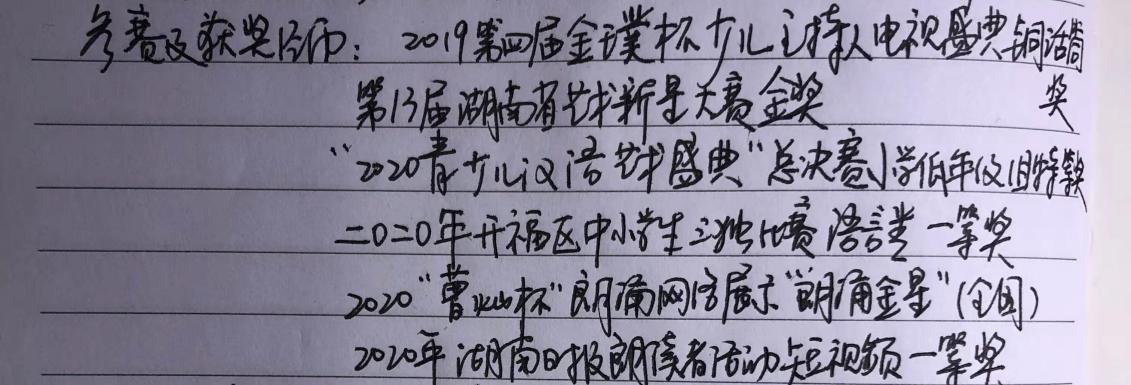 参赛及获奖经历：2019第四届金璞杯少儿主持人电视盛典铜话筒奖
第13届湖南省艺术新星大赛金奖
“2020青少儿汉语艺术盛典”总决赛小学低年级组特等奖
二0二0年开福区中小学生三独比赛语言类一等奖
2020“曹火山杯”朗诵网络展示“朗诵金星”(全国)
2020年湖南日报朗读者活动短视频一等奖